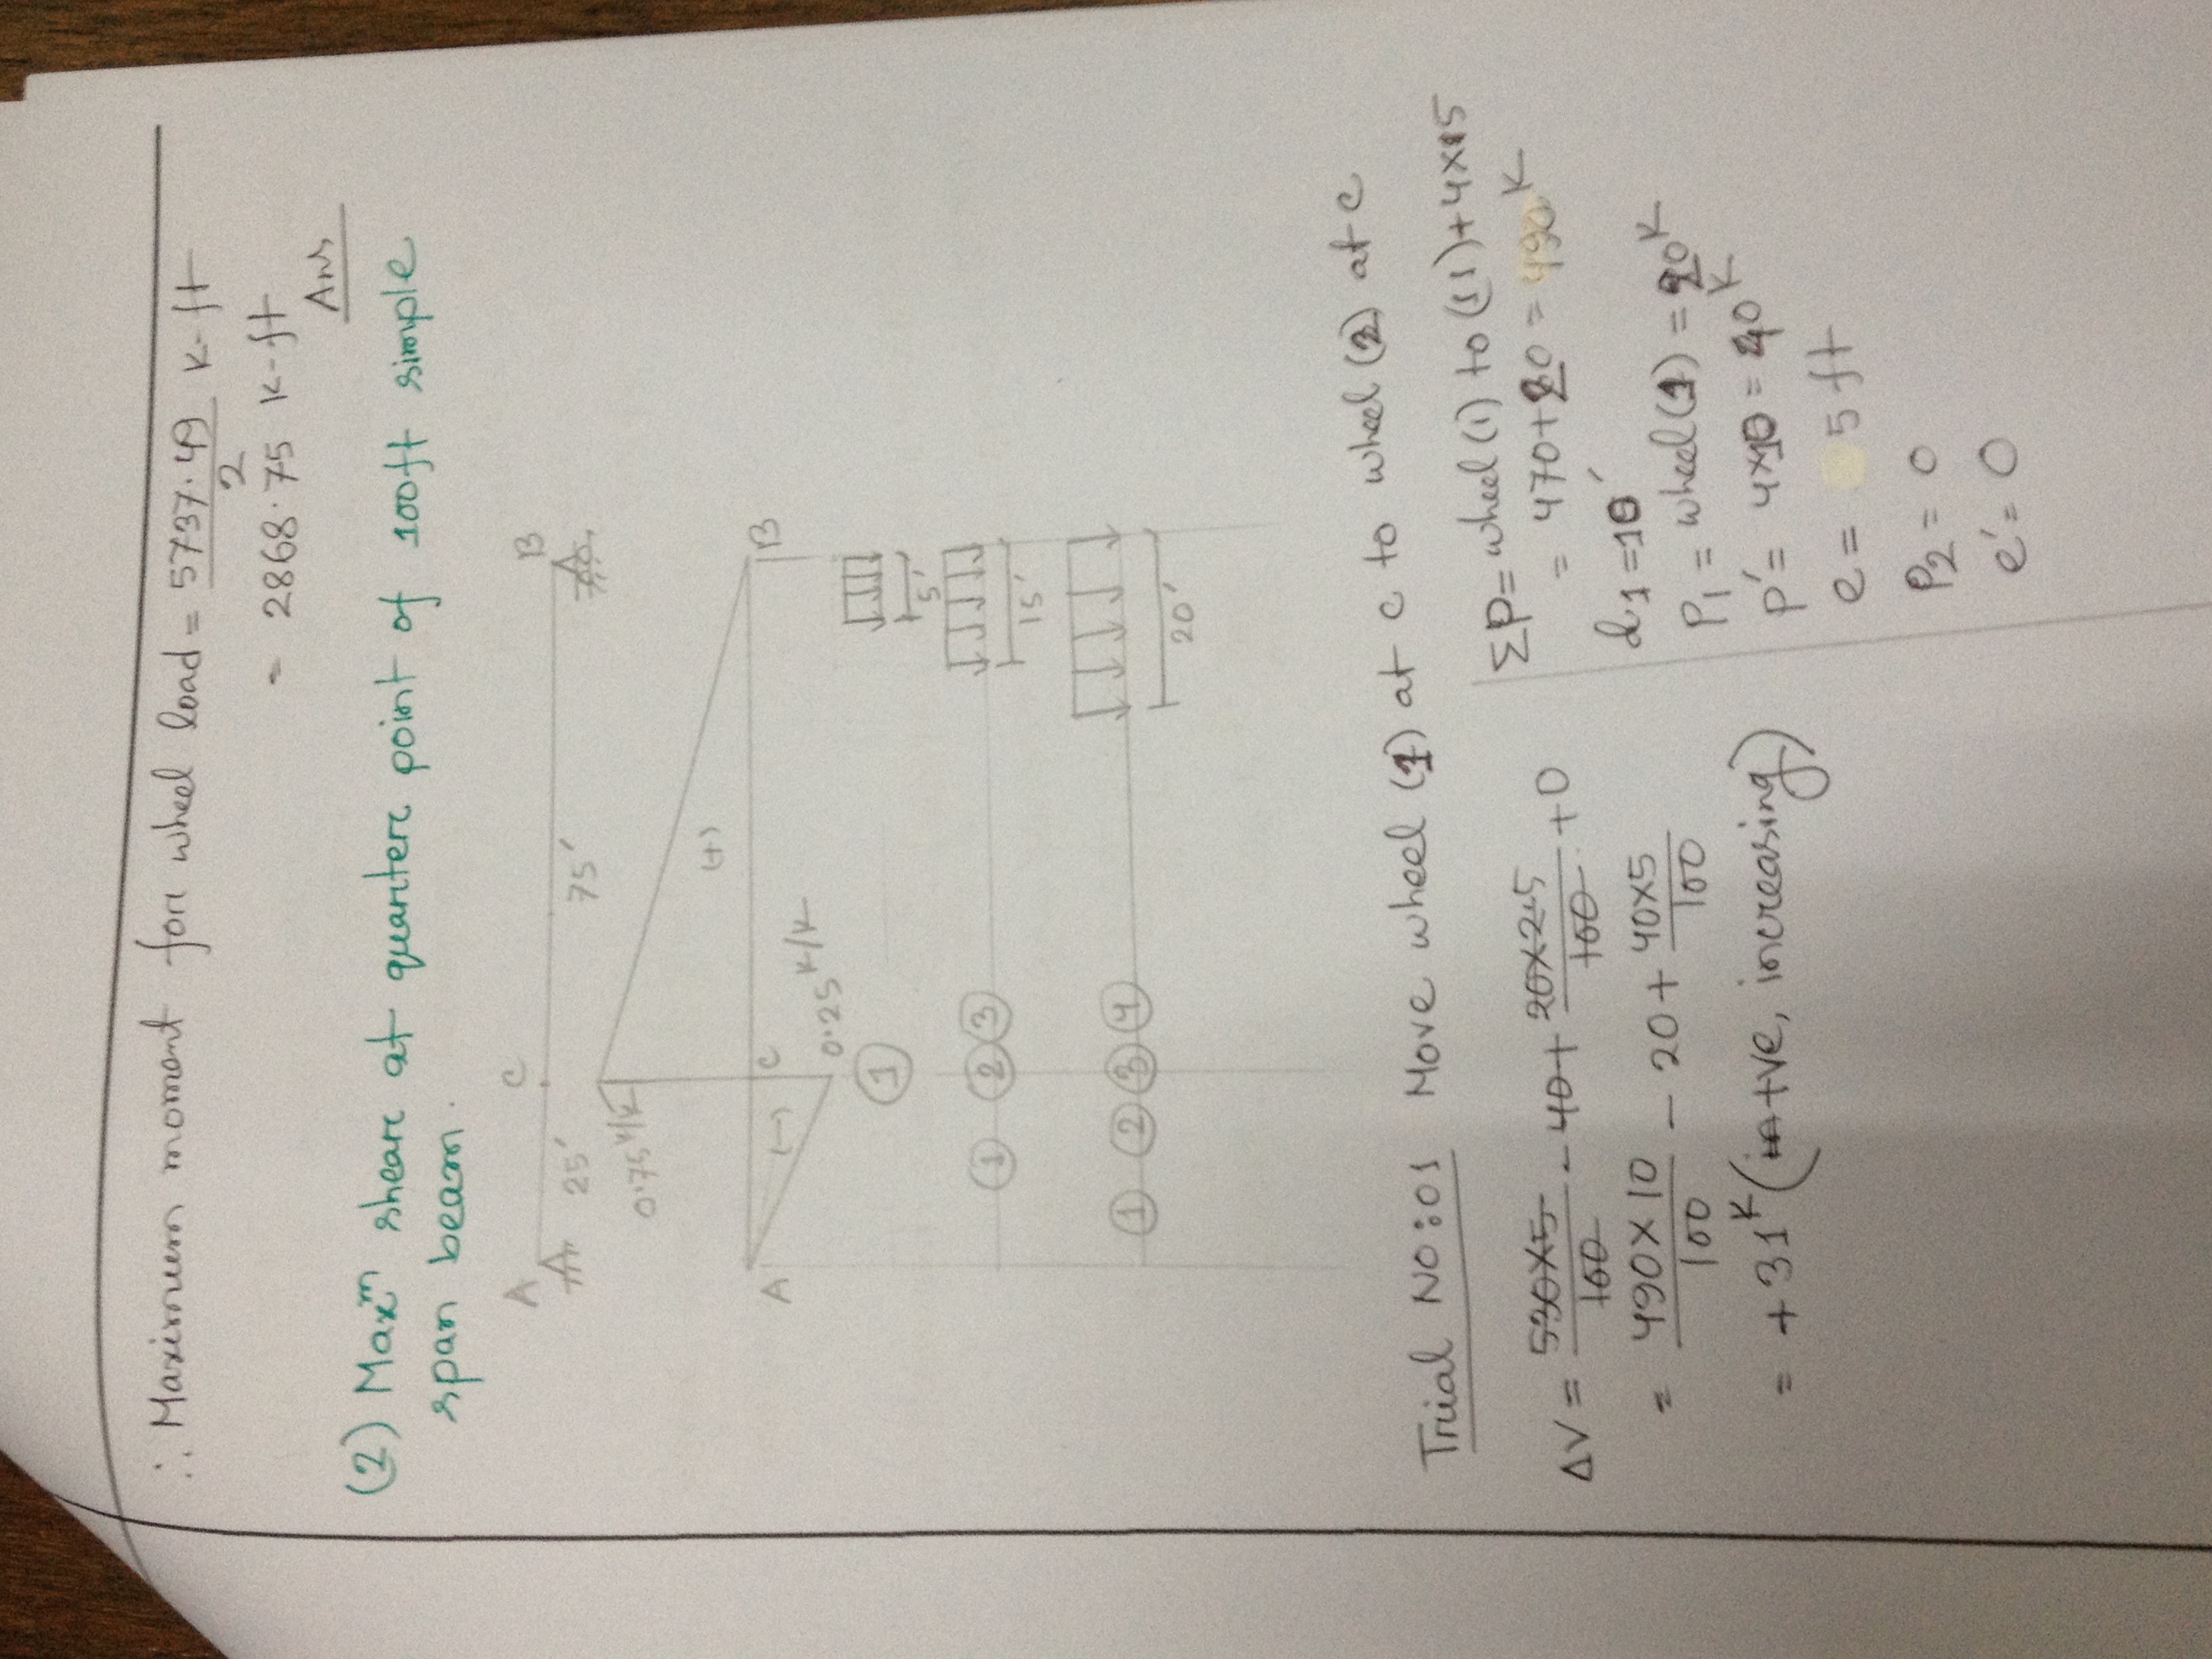 ∴ Maximum moment for wheel load = 5737.49/2 K-ft
= 2868.75 K-ft
Ans
(2) Maxᵐ shear at quarter point of 100ft simple
span beam.
A C B
25' 75'
0.75 K/K
(+)
A (-) C B
0.25 K/K
① 5'
① ② ③ 15'
① ② ③ ④ 20'
Trial No:01 Move wheel (1) at C to wheel (2) at C
ΔV = 530×5/100 - 40 + 20×2.5/100 + 0
= 490×10/100 - 20 + 40×5/100
= +31ᴷ (+ve, increasing)
ΣP = wheel (1) to (11) + 4×5
= 470+20 = 490 K
d₁ = 10'
P₁ = wheel (1) = 20 K
P' = 4×10 = 40 K
e = 5 ft
P₂ = 0
e' = 0